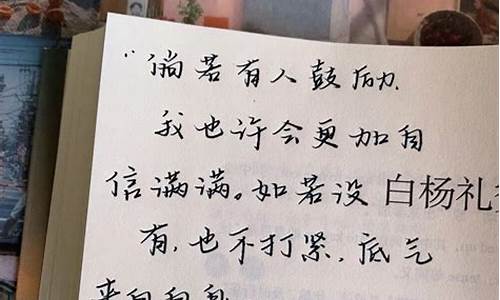 “倘若有人鼓励
我也许会更加自
信满满。如若没 白杨礼
有,也不打紧,底气
来自自身